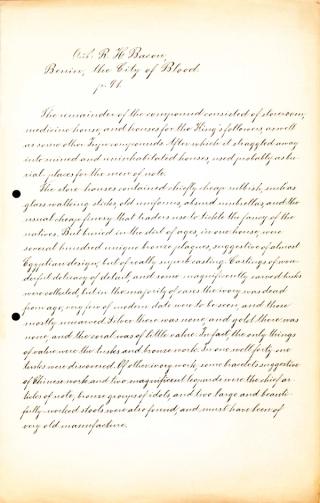 R. H. Bacon,
Benin, the City of Blood.
p. 91.
The remainder of the compound consisted of storerooms,
medicine house, and houses for the King's followers, as well
as some other Juju compounds. After which it straggled away
into ruined and uninhabited houses, used probably as bu-
rial places for the men of note.
The store houses contained chiefly cheap rubbish, such as
glass walking sticks, old uniforms, absurd umbrellas, and the
usual cheap finery that traders use to tickle the fancy of the
natives. But buried in the dirt of ages, in one house, were
several hundred unique bronze plaques, suggestive of almost
Egyptian design, but of really superb casting. Castings of won-
derful delicacy of detail, and some magnificently carved tusks
were collected, but in the majority of cases the ivory was dead
from age, very few of modern date were to be seen, and these
mostly uncarved. Silver there was none, and gold there was
none, and the coral was of little value. In fact, the only things
of value were the tusks and bronze work. In one well forty-one
tusks were discovered. Of other ivory work, some bracelets suggestive
of Chinese work and two magnificent leopards were the chief ar-
ticles of note, bronze groups of idols, and two large and beauti-
fully-worked stools were also found, and must have been of
very old manufacture.